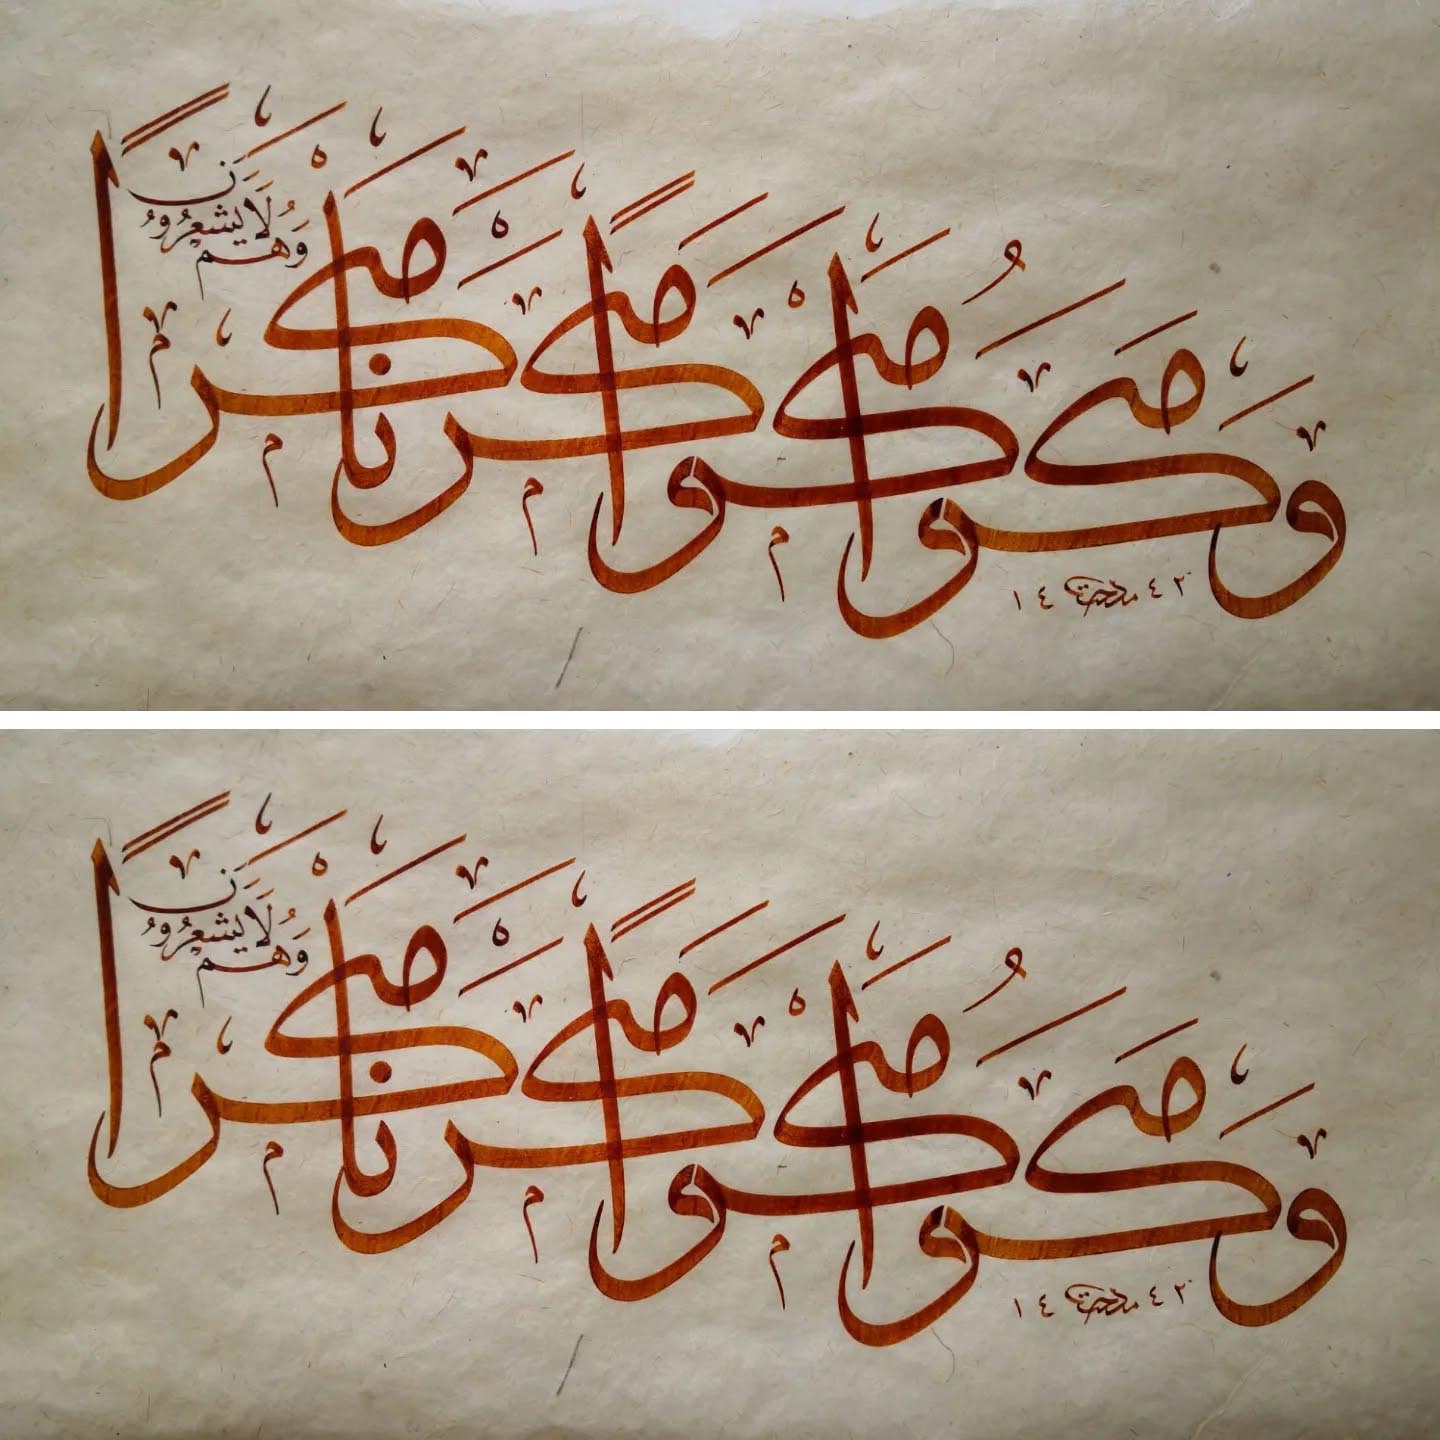 وَمَكَرُوا مَكْرًا وَمَكَرْنَا مَكْرًا
وَهُمْ لَا يَشْعُرُونَ
١٤ ٤٢
وَمَكَرُوا مَكْرًا وَمَكَرْنَا مَكْرًا
وَهُمْ لَا يَشْعُرُونَ
١٤ ٤٢